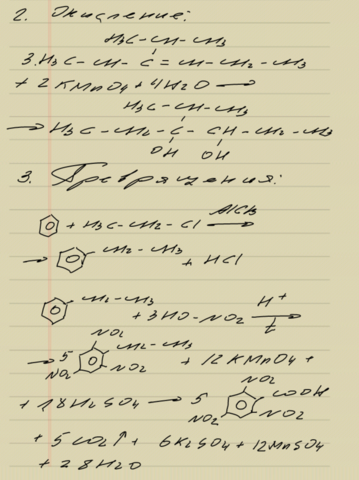 2. Окисление:
H₃C-CH-CH₃
3. H₃C-CH₂-C=CH-CH₂-CH₃
+ 2 KMnO₄ + 4H₂O →
H₃C-CH-CH₃
→ H₃C-CH₂-C-CH-CH₂-CH₃
OH OH
3. Превращения:
+ H₃C-CH₂-Cl AlCl₃ →
→ CH₂-CH₃ + HCl
CH₂-CH₃ + 3HO-NO₂ H⁺ t →
→ 5 NO₂ CH₂-CH₃ NO₂ NO₂ + 12 KMnO₄ +
+ 18H₂SO₄ → 5 NO₂ COOH NO₂ NO₂
+ 5 CO₂↑ + 6K₂SO₄ + 12MnSO₄
+ 28H₂O